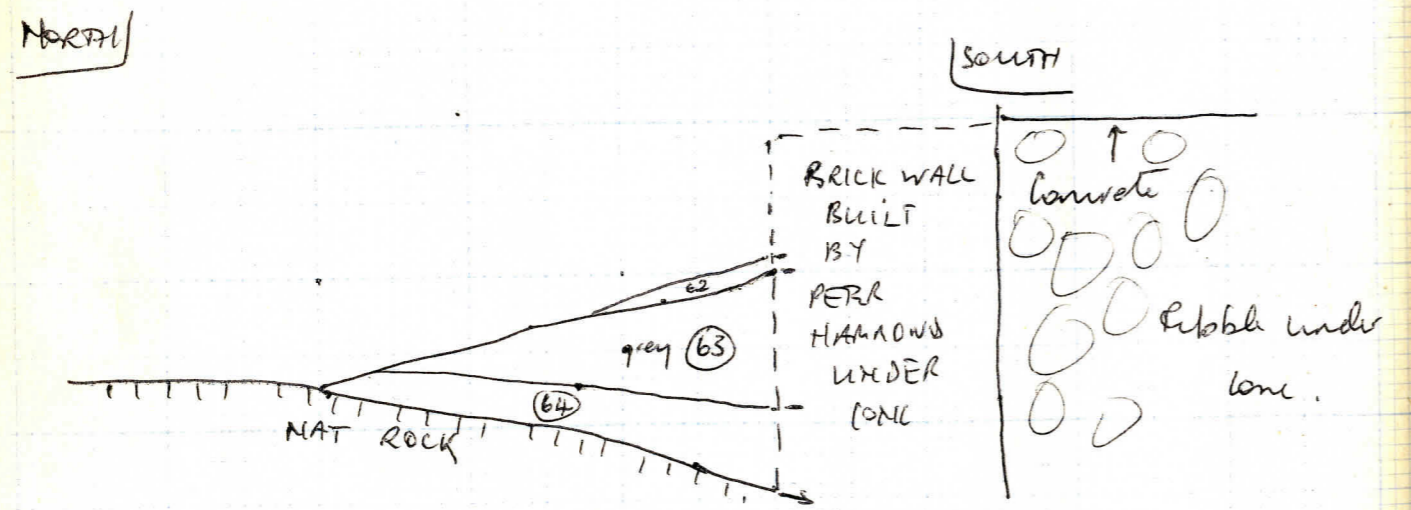 NORTH
SOUTH
BRICK WALL
BUILT
BY
PETER
HAMMOND
UNDER
CONC
↑
Concrete
Rubble under
conc.
62
grey 63
64
NAT ROCK